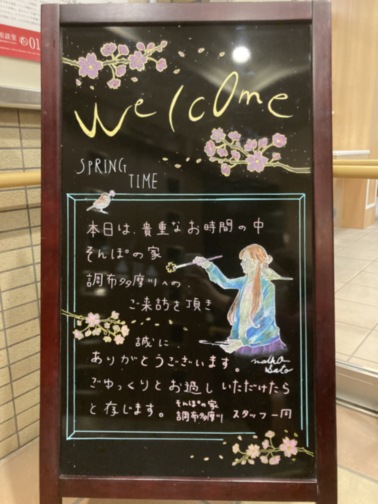 01
Welcome
SPRING
TIME
本日は、貴重なお時間の中
そんぽの家
調布多摩川への、
ご来訪を頂き
誠に
ありがとうございます。
ごゆっくりとお過しいただけたら
と存じます。
そんぽの家
調布多摩川 スタッフ一同